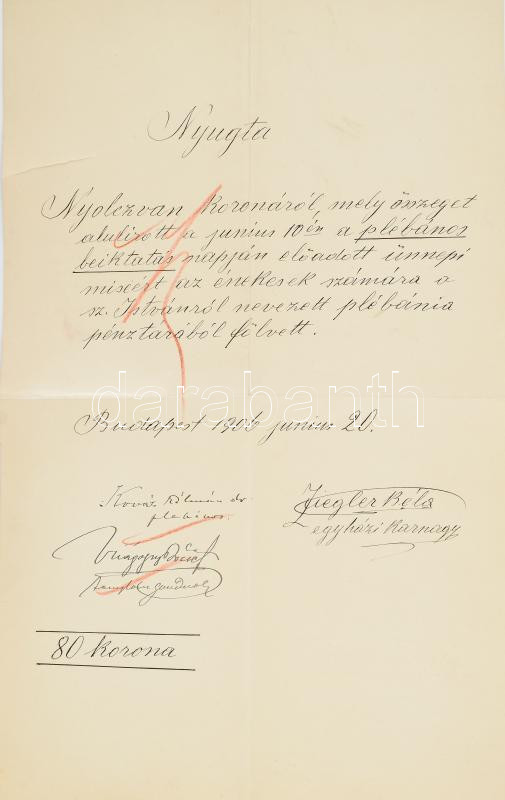 Nyugta
Nyolczvan koronáról, mely összeget
alulirott a junius 10én a plébános
beiktatás napján előadott ünnepi
miseért az énekesek számára a
sz. Istvánról nevezett plébánia
pénztárából fölvett.
darabanth
Budapest 1906 junius 20.
Kovács Kálmán dr
plebános.
Ziegler Béla
egyházi karnagy
80 korona